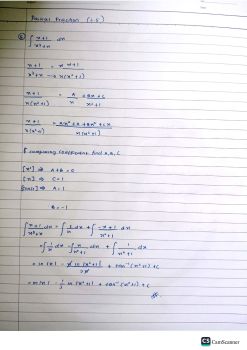 Partial Fraction (L5)
⑥ ∫ x+1 / x³+x dx
x+1 / x³+x → x+1 / x(x²+1)
x+1 / x(x²+1) = A / x + Bx+C / x²+1
x+1 / x(x²+1) = Ax²+A+Bx²+Cx / x(x²+1)
comparing coefficient find A, B, C
[x²] ⇒ A+B = 0
[x] ⇒ C = 1
⇒ A = 1
B = -1
∫ x+1 / x³+x dx = ∫ 1/x dx + ∫ -x+1 / x²+1 dx
= ∫ 1/x dx - ∫ x / x²+1 dx + ∫ 1 / x²+1 dx
= ln|x| - ln|x²+1| / 2 + tan⁻¹(x²+1) + C
= ln|x| - 1/2 ln|x²+1| + tan⁻¹(x²+1) + C
CS CamScanner